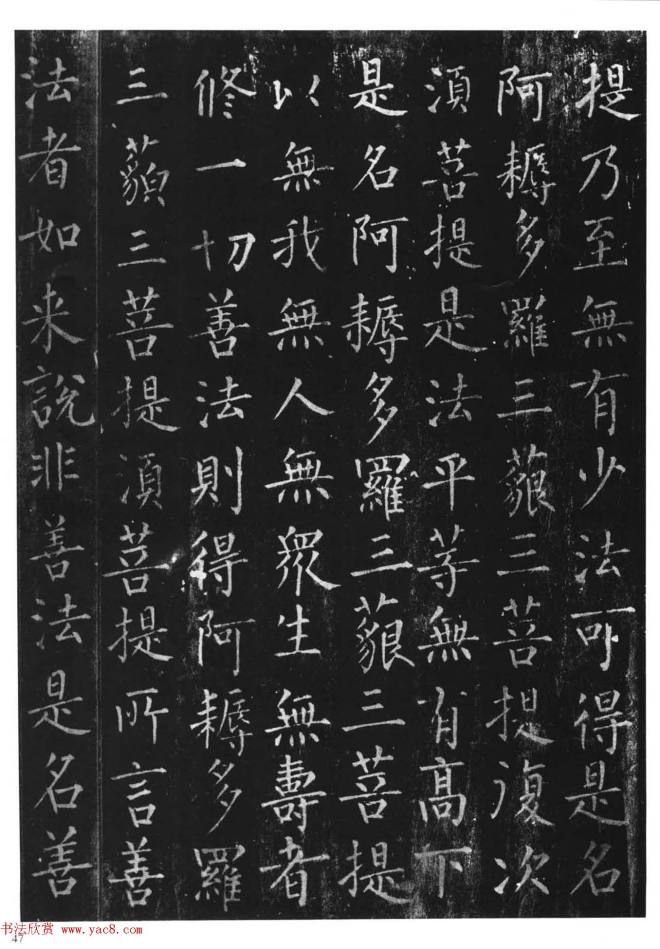 提乃至無有少法可得是名
阿耨多羅三藐三菩提復次
須菩提是法平等無有高下
是名阿耨多羅三藐三菩提
以無我無人無眾生無壽者
修一切善法則得阿耨多羅
三藐三菩提須菩提所言善
法者如来說非善法是名善
书法欣赏 www.yac8.com
47